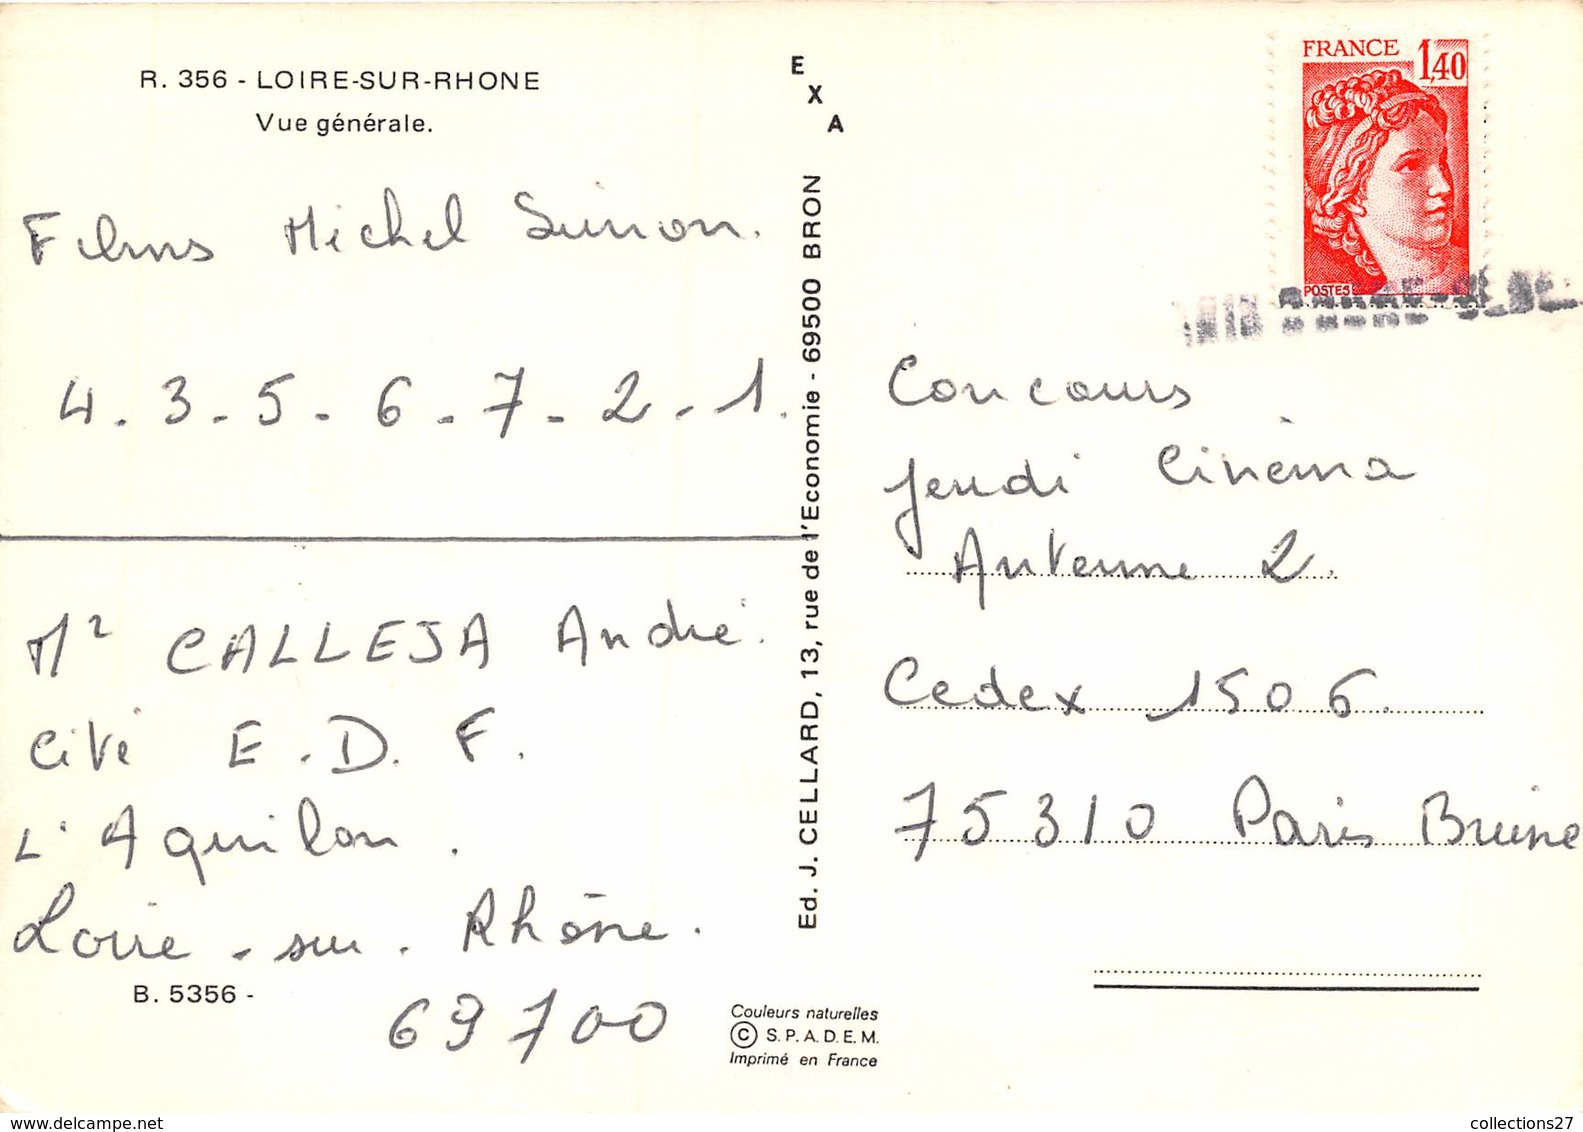 R. 356 - LOIRE-SUR-RHONE
Vue générale.
Films Michel Simon.
4. 3. 5. 6. 7. 2. 1.
Mr CALLEJA André.
Cité E. D. F.
L'Aquilon.
Loire - sur - Rhône.
69700
B. 5356 -
E
X
A
Ed. J. CELLARD, 13, rue de l'Economie - 69500 BRON
Couleurs naturelles
© S.P.A.D.E.M.
Imprimé en France
FRANCE 1,40
POSTES
Concours
Jeudi Cinéma
Antenne 2.
Cedex 1506.
75310 Paris Brune
collections27